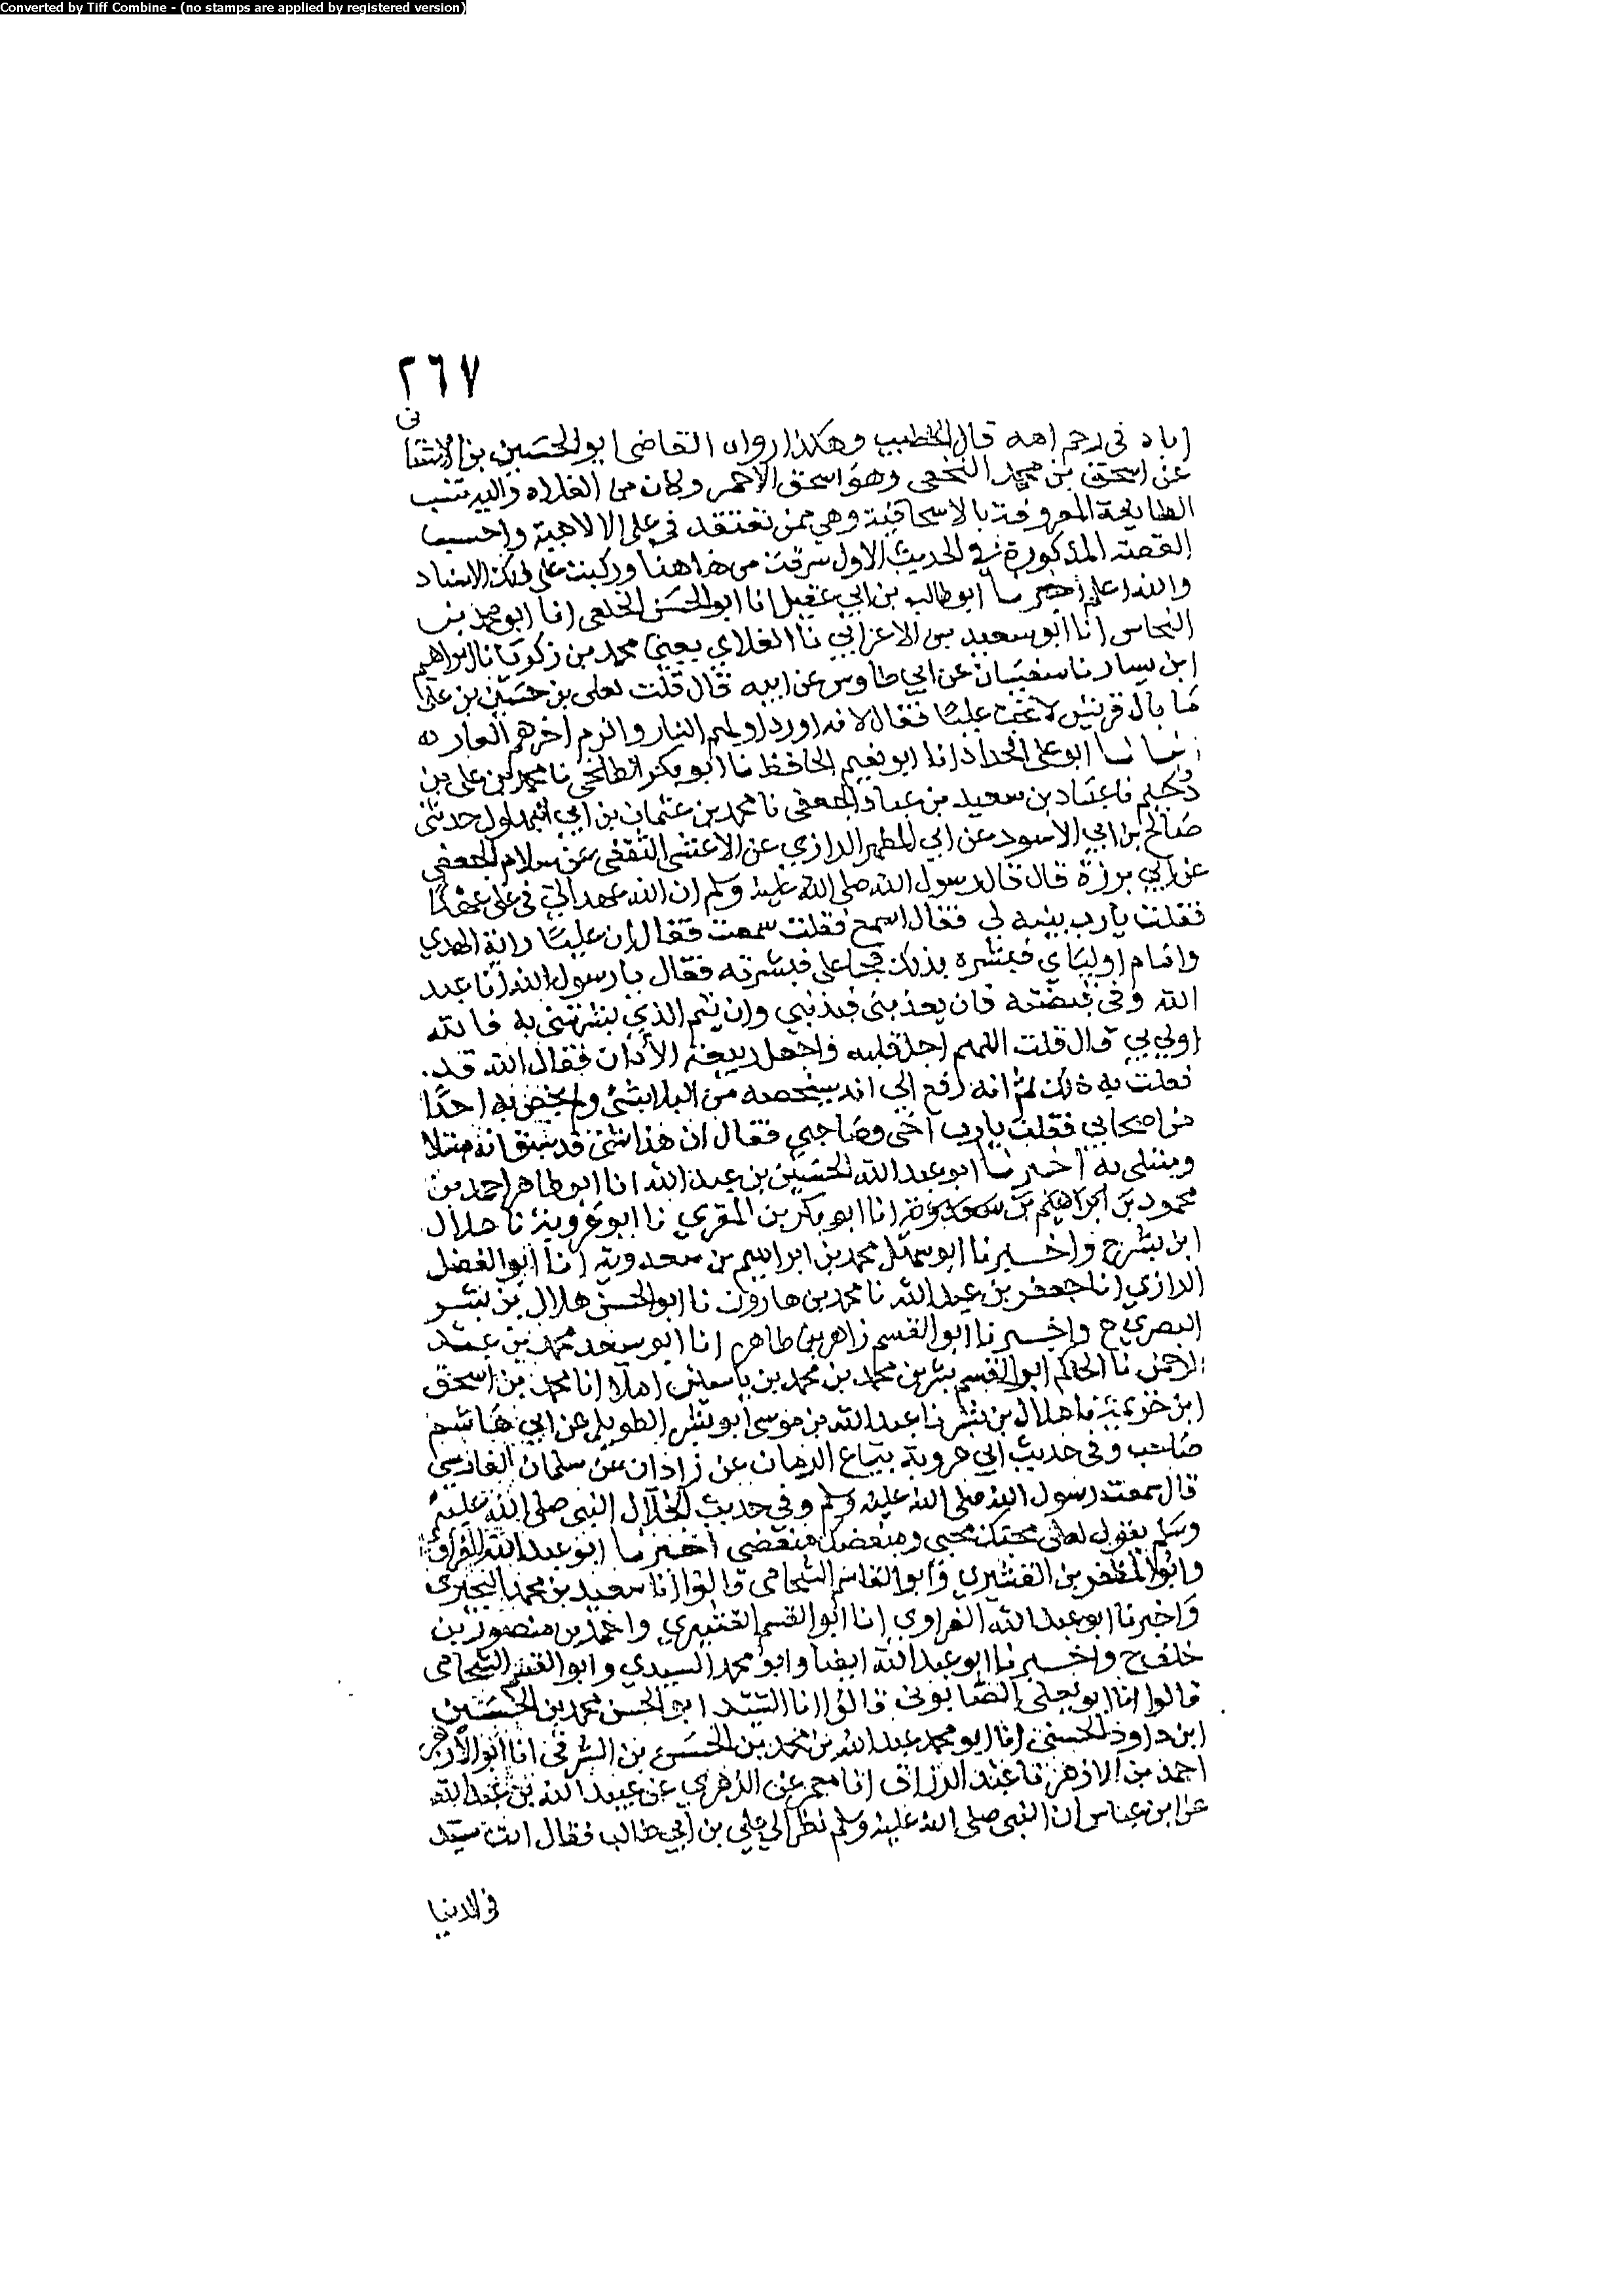 Converted by Tiff Combine - (no stamps are applied by registered version)
٢٦٧
اباه في رحم امه قال الخطيب وهكذا رواه القاضي ابو الحسين بن الاشنا
ني
عن اسحق بن محمد النخعي وهو اسحق الاحمر وكان من الغلاه واليه تنسب
الطايفة المعروفة بالاسحاقية وهي ممن تعتقد في علي الالاهية واحسب
القصة المذكورة في الحديث الاول سرقت من هاهنا وركبت على ذلك الاسناد
والله اعلم اخبرنا ابو طالب بن ابي عقيل انا ابو الحسن الخلعي انا ابو محمد بن
النحاس انا ابو سعيد بن الاعرابي نا الغلابي يعني محمد بن زكريا نا ابراهيم
ابن بسار نا سفيان عن ابي طاوس عن ابيه قال قلت لعلي بن حسين بن علي
ما بال قريش لا تحب عليا فقال لانه اورد اولهم النار والزم اخرهم العار
ابو علي الحداد انا ابو نعيم الحافظ نا ابو بكر الطلحي نا محمد بن علي بن
دحيم نا عباد بن سعيد بن عباد الجعفي نا محمد بن عثمان بن ابي البهلول حدثني
صالح بن ابي الاسود عن ابي المطهر الرازي عن الاعشى الثقفي عن سلام الجعفي
عن ابي برزة قال قال رسول الله صلى الله عليه وسلم ان الله عهد الي في علي عهدا
فقلت يا رب بينه لي فقال اسمع فقلت سمعت فقال ان عليا راية الهدى
وامام اوليائي فبشره بذلك فجا علي فبشرته فقال يا رسول الله انا عبد
الله وفي قبضته فان يعذبني فبذنبي وان يتم الذي بشرتني به فالله
اولى بي قال قلت اللهم اجل قلبه واجعل ربيعه الايمان فقال الله قد
فعلت به ذلك ثم انه رفع الي انه سيخصه من البلا بشئ ولم يخص به احدا
من اصحابي فقلت يا رب اخي وصاحبي فقال ان هذا شئ قد سبق انه مبتلا
ومبتلى به اخبرنا ابو عبد الله الحسين بن عبد الله انا ابو طاهر احمد بن
محمود بن ابراهيم بن سعدويه انا ابو بكر بن المقري نا ابو عروبة نا هلال
ابن بشر ح واخبرنا ابو سهل محمد بن ابراهيم بن سعدويه انا ابو الفضل
الرازي انا جعفر بن عبد الله نا محمد بن هارون نا ابو الحسن هلال بن بشر
البصري ح واخبرنا ابو القسم زاهر بن طاهر انا ابو سعد محمد بن عبد
الرحمن نا الحاكم ابو القسم بشر بن محمد بن محمد بن ياسين املا انا محمد بن اسحق
ابن خزيمة نا هلال بن بشر نا عبد الله بن موسى ابو بشر الطويل عن ابي هاشم
صاحب وفي حديث ابي عروبة بياع الرمان عن زاذان عن سلمان الفارسي
قال سمعت رسول الله صلى الله عليه وسلم وفي حديث الخلال النبي صلى الله عليه
وسلم يقول لعلي محبك محبي ومبغضك مبغضي اخبرنا ابو عبد الله الفراوي
وابو المظفر بن القشيري وابو القاسم الشحامي قالوا انا سعيد بن محمد البحيري
واخبرنا ابو عبد الله الفراوي انا ابو القسم القشيري واحمد بن منصور بن
خلف ح واخبرنا ابو عبد الله ايضا وابو محمد السيدي وابو القسم الشحامي
قالوا انا ابو يعلى الصابوني قالوا انا السيد ابو الحسن محمد بن الحسين
ابن داود الحسني انا ابو محمد عبد الله بن محمد بن الحسن بن الشرقي انا ابو الازهر
احمد بن الازهر نا عبد الرزاق انا معمر عن الزهري عن عبيد الله بن عبد الله
عن ابن عباس ان النبي صلى الله عليه وسلم نظر الى علي بن ابي طالب فقال انت سيد
في الدنيا